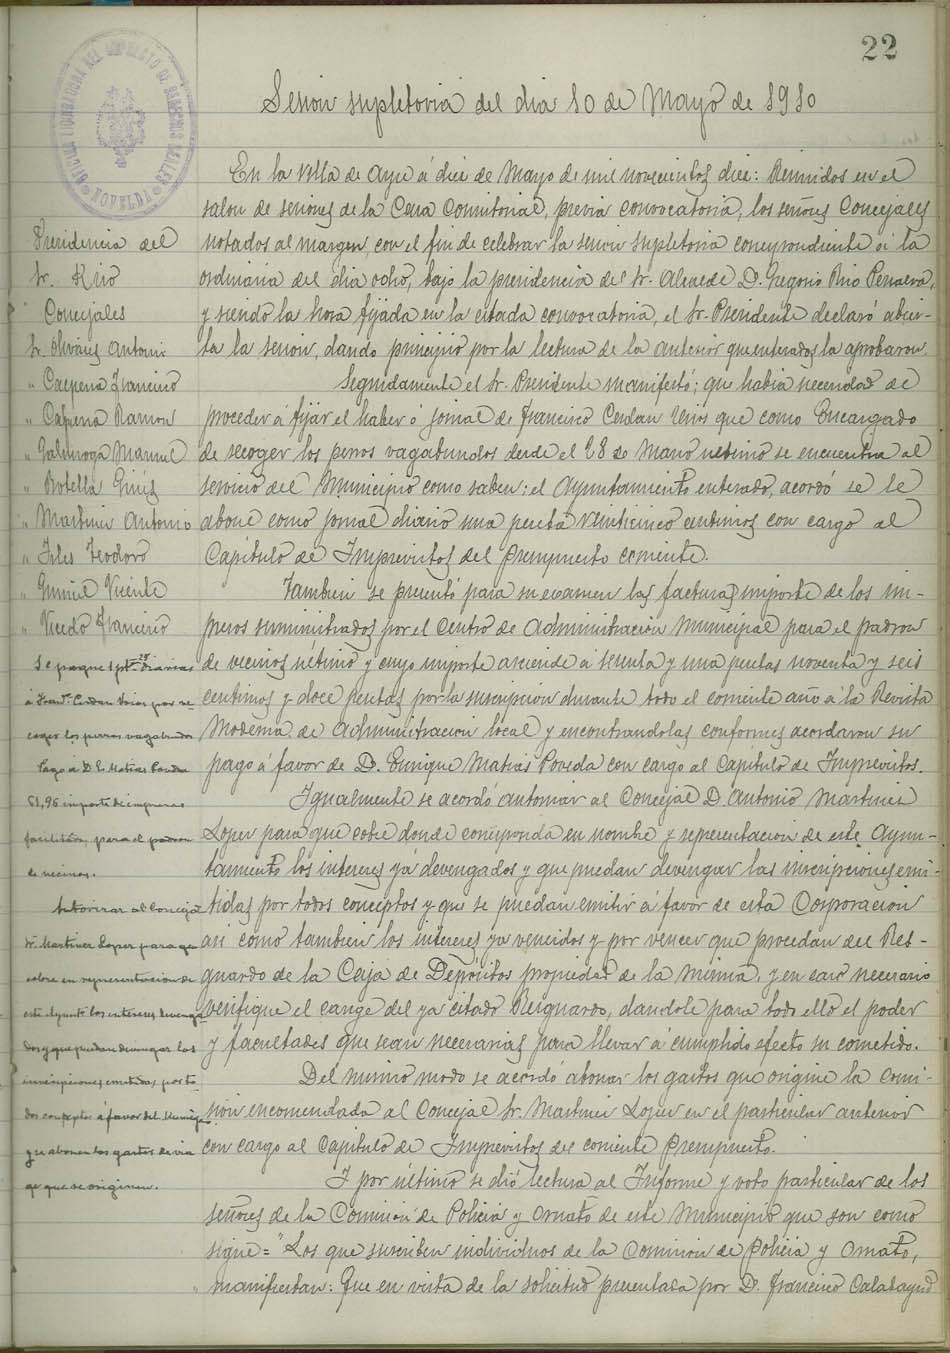 22
OFICINA LIQUIDADORA DEL IMPUESTO DE DERECHOS REALES
NOVELDA
Sesion supletoria del dia 10 de Mayo de 1910
En la villa de Aspe á diez de Mayo de mil novecientos diez: Reunidos en el
salon de sesiones de la Casa Consistorial, previa convocatoria, los señores Concejales
notados al margen, con el fin de celebrar la sesion supletoria correspondiente á la
ordinaria del dia ocho, bajo la presidencia del Sr. Alcalde D. Gregorio Rico Penalva,
y siendo la hora fijada en la citada convocatoria, el Sr. Presidente declaró abier-
ta la sesion, dando principio por la lectura de la anterior que enterados la aprobaron.
Seguidamente el Sr. Presidente manifestó; que habia necesidad de
proceder á fijar el haber ó jornal de Francisco Cerdan que como Encargado
de recoger los perros vagabundos desde el 28 de Marzo ultimo se encuentra al
servicio del Municipio como saben: el Ayuntamiento enterado, acordó se le
abone como jornal diario una peseta veinticinco centimos con cargo al
Capitulo de Imprevistos del Presupuesto corriente.
Tambien se presentó para su examen las facturas importe de los im-
presos suministrados por el Centro de Administración Municipal para el padron
de vecinos último y cuyo importe asciende á sesenta y una pesetas noventa y seis
centimos y doce pesetas por la suscripcion durante todo el corriente año á la Revista
Moderna de Administracion local y encontrandolas conformes acordaron su
pago á favor de D. Enrique Matias Poveda con cargo al Capitulo de Imprevistos.
Igualmente se acordó autorizar al Concejal D. Antonio Martinez
Lopez para que cobre donde corresponda en nombre y representacion de este Ayun-
tamiento los intereses ya devengados y que puedan devengar las inscripciones emi-
tidas por todos conceptos y que se puedan emitir á favor de esta Corporacion
asi como tambien los intereses ya vencidos y por vencer que procedan del Res-
guardo de la Caja de Depositos propiedad de la misma, y en caso necesario
verifique el cange del ya citado Resguardo, dandole para todo ello el poder
y facultades que sean necesarias para llevar á cumplido efecto su cometido.
Del mismo modo se acordó abonar los gastos que origine la comi-
sion encomendada al Concejal Sr. Martinez Lopez en el particular anterior
con cargo al Capitulo de Imprevistos del corriente Presupuesto.
Y por último se dió lectura al Informe y voto particular de los
señores de la Comision de Policia y Ornato de este Municipio que son como
sigue = "Los que suscriben individuos de la Comision de Policia y Ornato,
manifiestan: Que en vista de la solicitud presentada por D. Francisco Calatayud
Presidencia del
Sr. Rico
Concejales
Sr. Antonio
" Francisco
" Ramon
" Galinsoga Manuel
" Botella Ginés
" Martinez Antonio
" Teodoro
" Vicente
" Vicedo Francisco
Se pague 1 pta 25 diarias
á Franco Cerdan por re-
coger los perros vagabundos
Pago á D. E. Matias Poveda
61,96 importe de impresos
facilitados para el padron
de vecinos.
Autorizar al Concejal
Sr. Martinez Lopez para que
cobre en representacion de
este Ayunto los intereses devenga-
dos y que puedan devengar las
inscripciones emitidas por to-
dos conceptos á favor del Municipio
y se abonen los gastos de via-
ge que se originen.